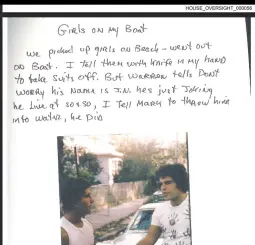 HOUSE_OVERSIGHT_000056
GIRLS ON MY BOAT
we picked up girls on Beach – went out
on Boat. I tell them with knife in my hand
to take suits off. But WARREN tells DONT
WORRY his NAME is J.N. hes just Joking
he Live at so & so, I Tell MARCH to throw him
into water, he DID